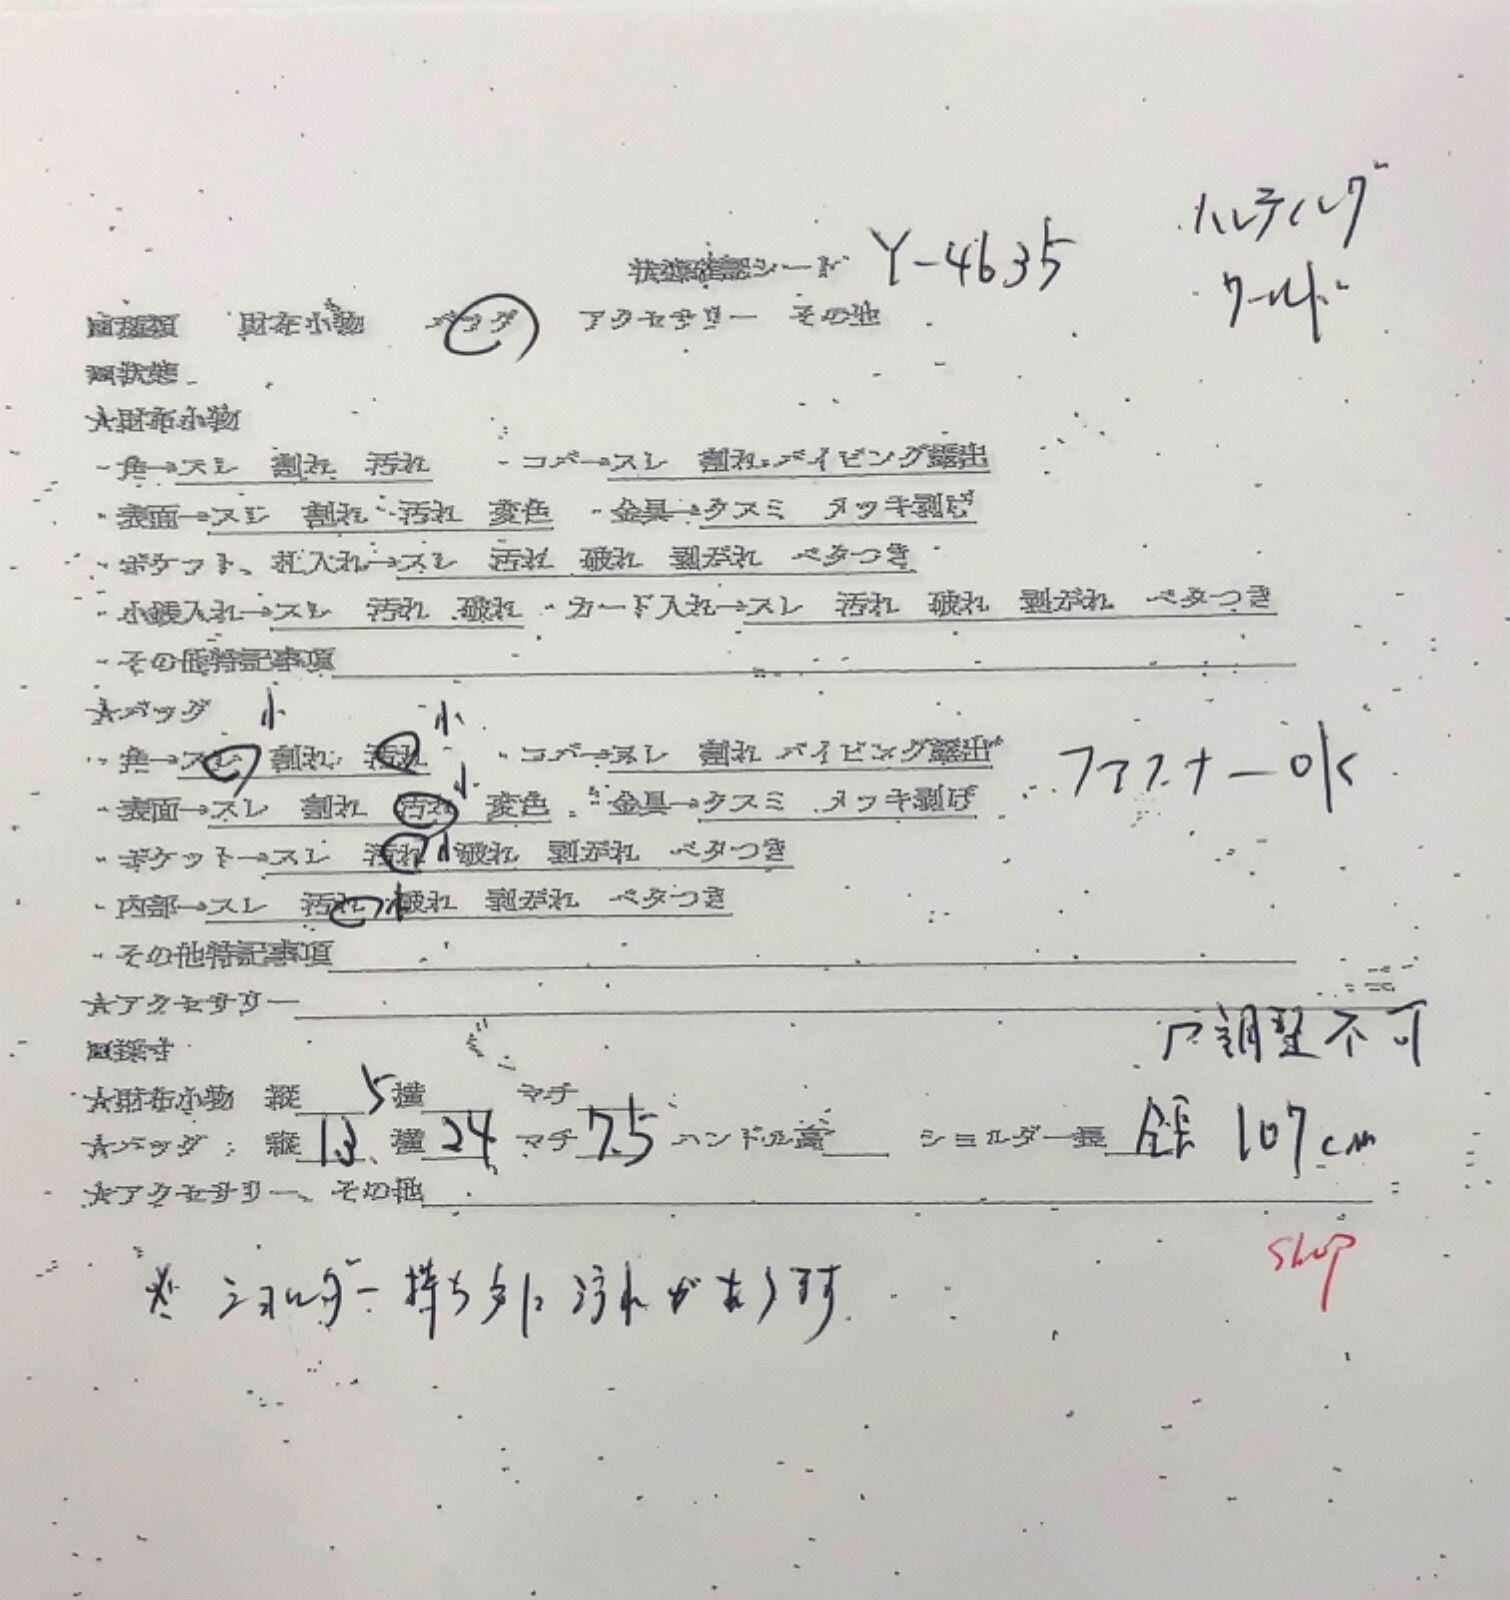 状態確認シート Y-4635
ハンティング
ワールド
■種類 財布小物 バッグ アクセサリー その他
■状態
★財布小物
・角→スレ 割れ 汚れ ・コバ→スレ 割れ パイピング露出
・表面→スレ 割れ 汚れ 変色 ・金具→クスミ メッキ剥げ
・ポケット、札入れ→スレ 汚れ 破れ 剥がれ ベタつき
・小銭入れ→スレ 汚れ 破れ ・カード入れ→スレ 汚れ 破れ 剥がれ ベタつき
・その他特記事項
★バッグ 小 小
・角→スレ 割れ 汚れ ・コバ→スレ 割れ パイピング露出 ファスナーOK
・表面→スレ 割れ 汚れ 小 変色 ・金具→クスミ メッキ剥げ
・ポケット→スレ 汚れ 小 破れ 剥がれ ベタつき
・内部→スレ 汚れ 小 破れ 剥がれ ベタつき
・その他特記事項
★アクセサリー
■採寸 調整不可
★財布小物 縦 5 横 マチ
★バッグ 縦 13 横 24 マチ 7.5 ハンドル高 ショルダー長 全長 107cm
★アクセサリー、その他
shop
※ ショルダー持ち手に汚れがあります